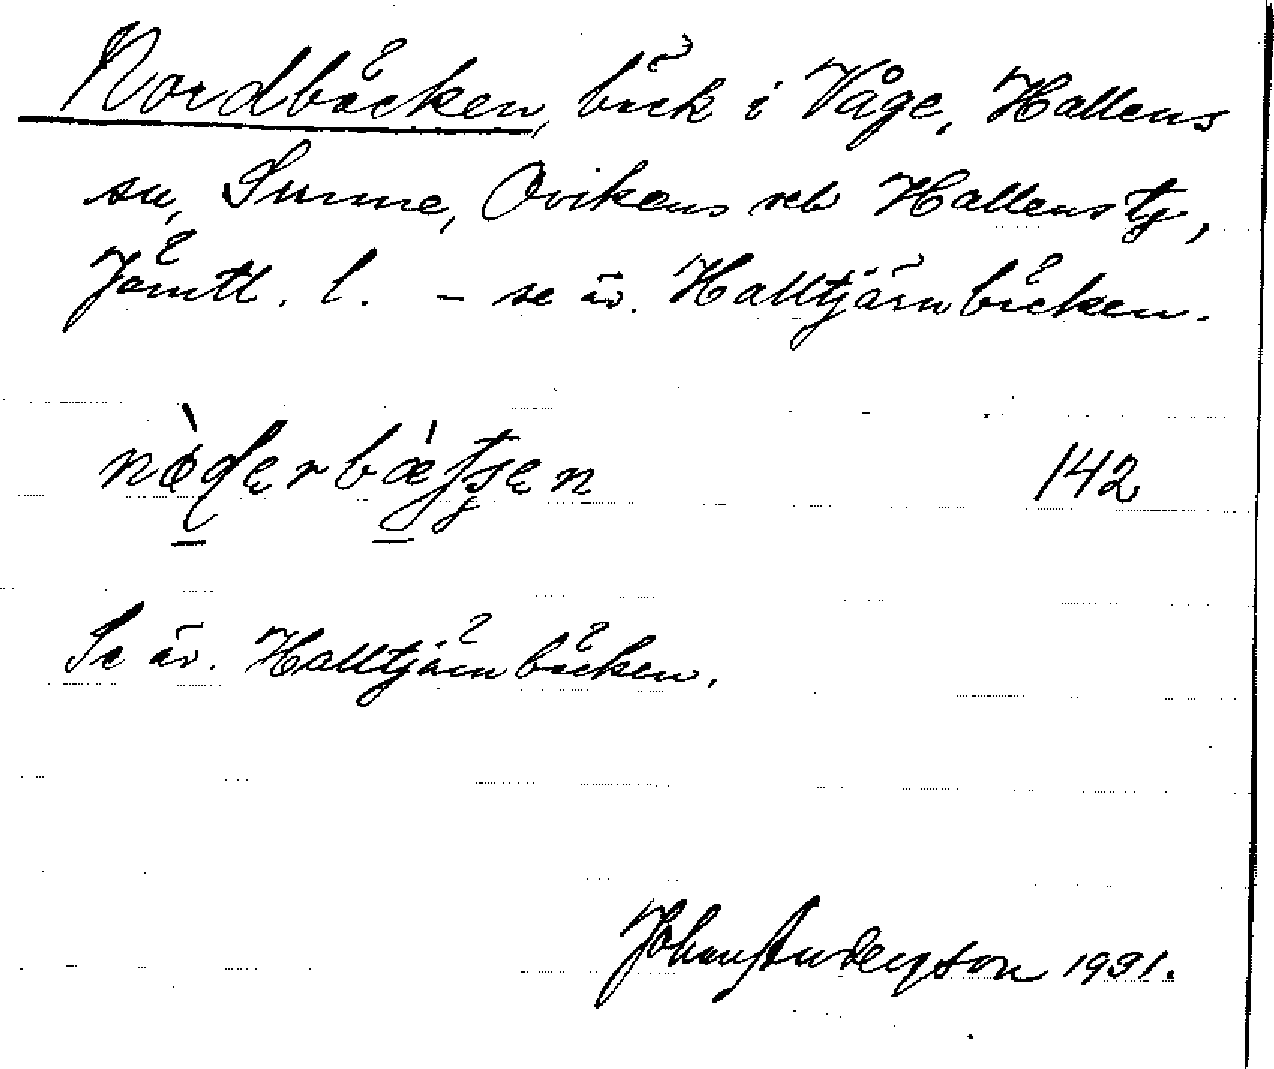 Nordbäcken, bäck i Våge, Hallens
sn, Sunne, Ovikens och Hallens tg,
Jämtl. l. – se äv. Halltjärnbäcken.
142
Se äv. Halltjärnbäcken.
Johan Anderson 1931.